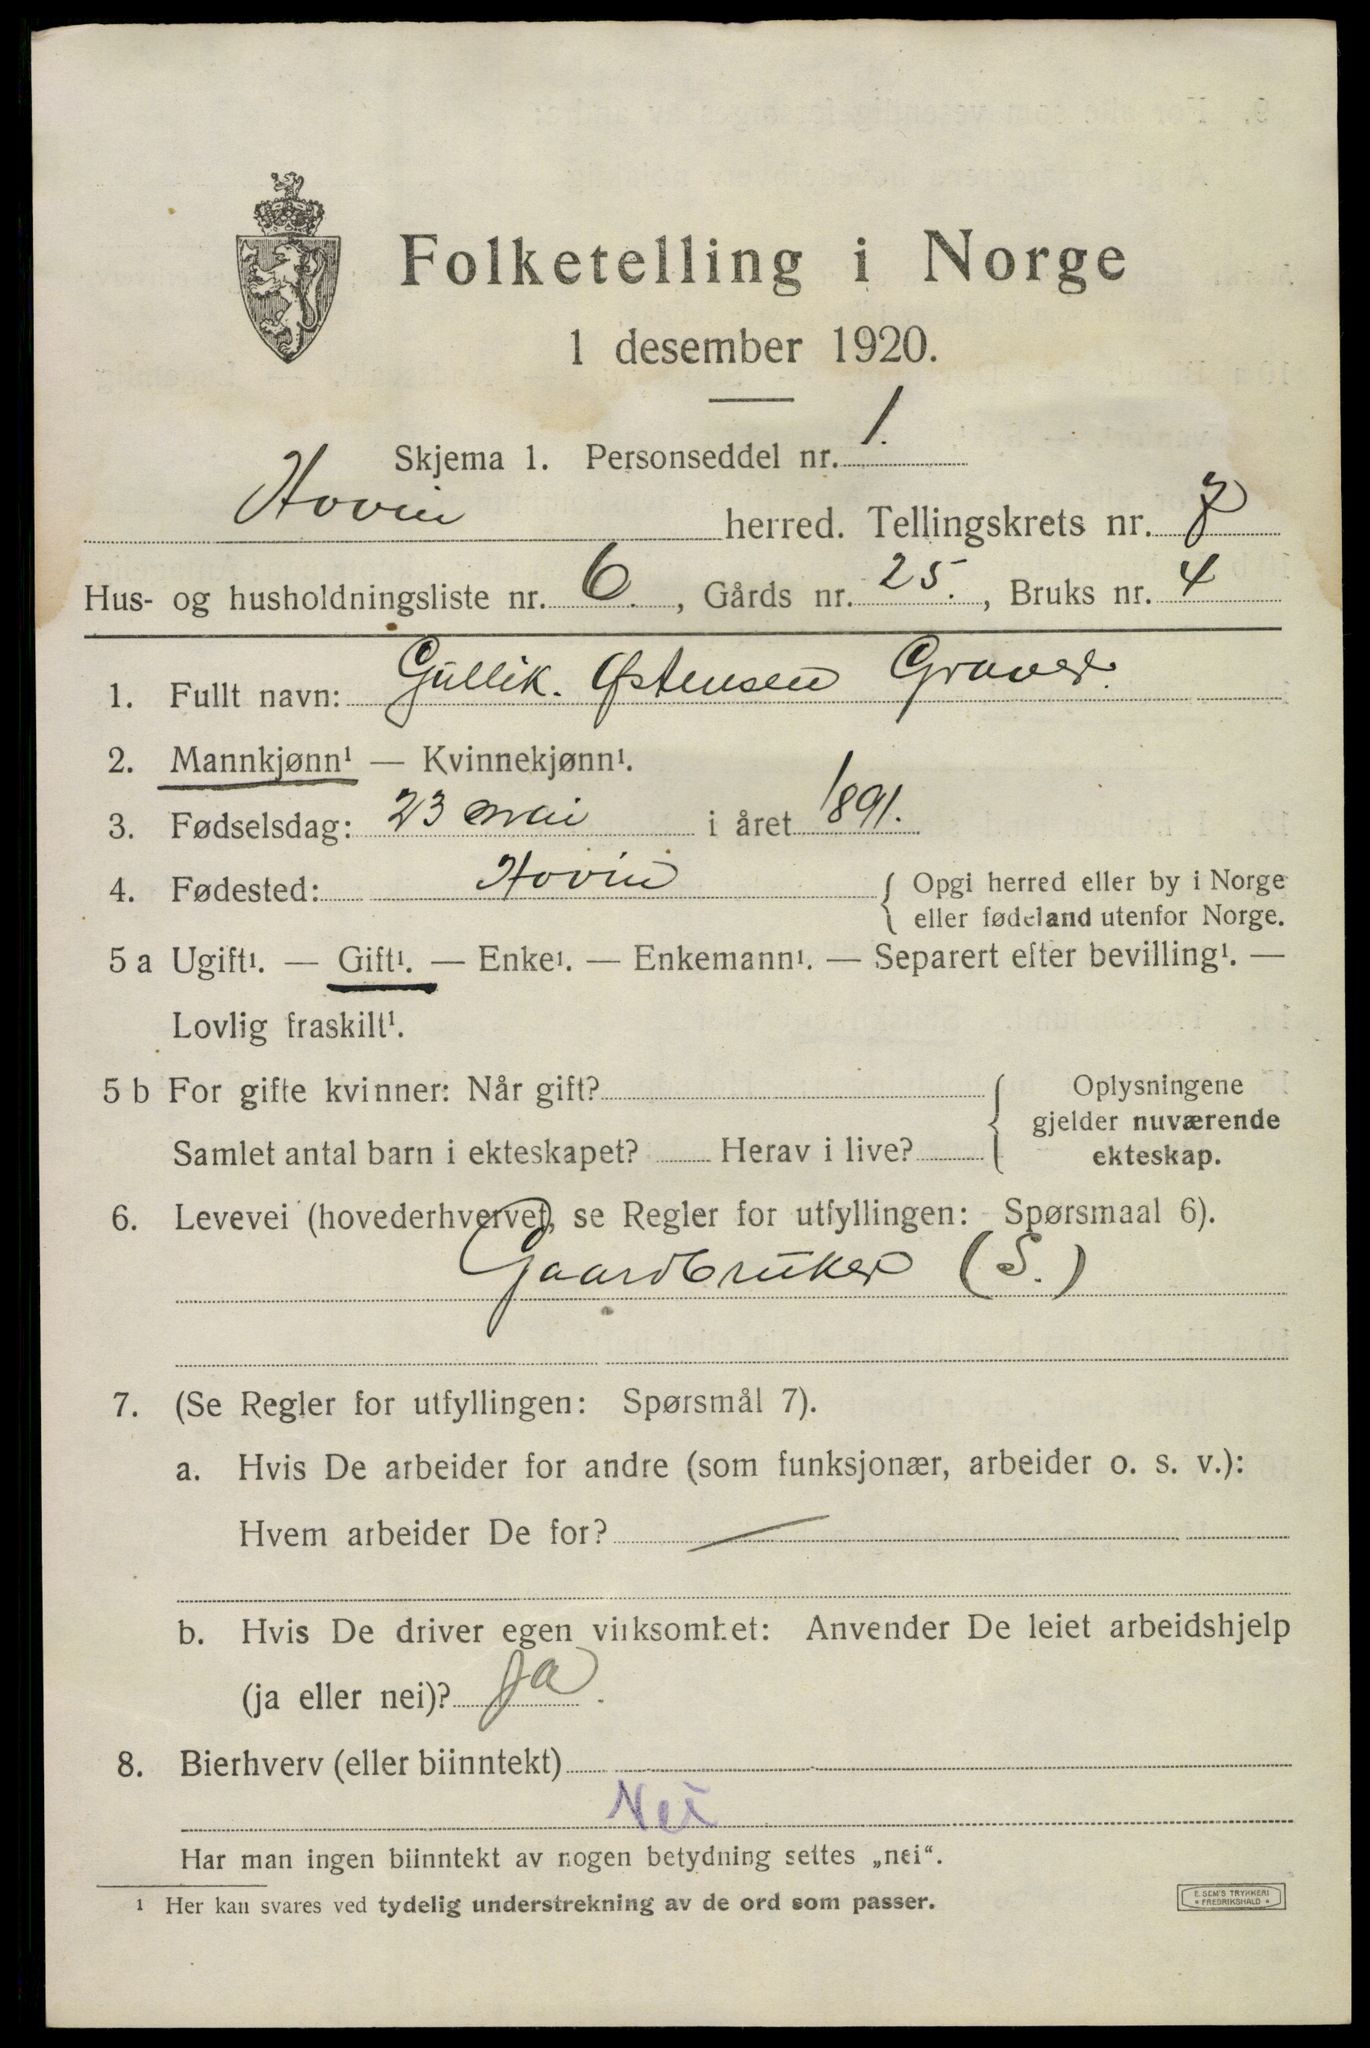 Folketelling i Norge
1 desember 1920.
Skjema 1. Personseddel nr. 1.
Hovin herred. Tellingskrets nr. 7
Hus- og husholdningsliste nr. 6. , Gårds nr. 25. , Bruks nr. 4
1. Fullt navn: Gullik. Østensen Graver.
2. Mannkjønn¹ — Kvinnekjønn¹.
3. Fødselsdag: 23 mai i året 1891.
4. Fødested: Hovin { Opgi herred eller by i Norge
eller fødeland utenfor Norge.
5 a Ugift¹. — Gift¹. — Enke¹. — Enkemann¹. — Separert efter bevilling¹. —
Lovlig fraskilt¹.
5 b For gifte kvinner: Når gift? { Oplysningene
gjelder nuværende
Samlet antal barn i ekteskapet? Herav i live? ekteskap.
6. Levevei (hovederhvervet, se Regler for utfyllingen: Spørsmaal 6).
Gaardbruker (S.)
7. (Se Regler for utfyllingen: Spørsmål 7).
a. Hvis De arbeider for andre (som funksjonær, arbeider o. s. v.):
Hvem arbeider De for? —
b. Hvis De driver egen virksomhet: Anvender De leiet arbeidshjelp
(ja eller nei)? Ja.
8. Bierhverv (eller biinntekt)
Nei
Har man ingen biinntekt av nogen betydning settes „nei“.
¹ Her kan svares ved tydelig understrekning av de ord som passer.
E. SEM'S TRYKKERI
* FREDRIKSHALD *